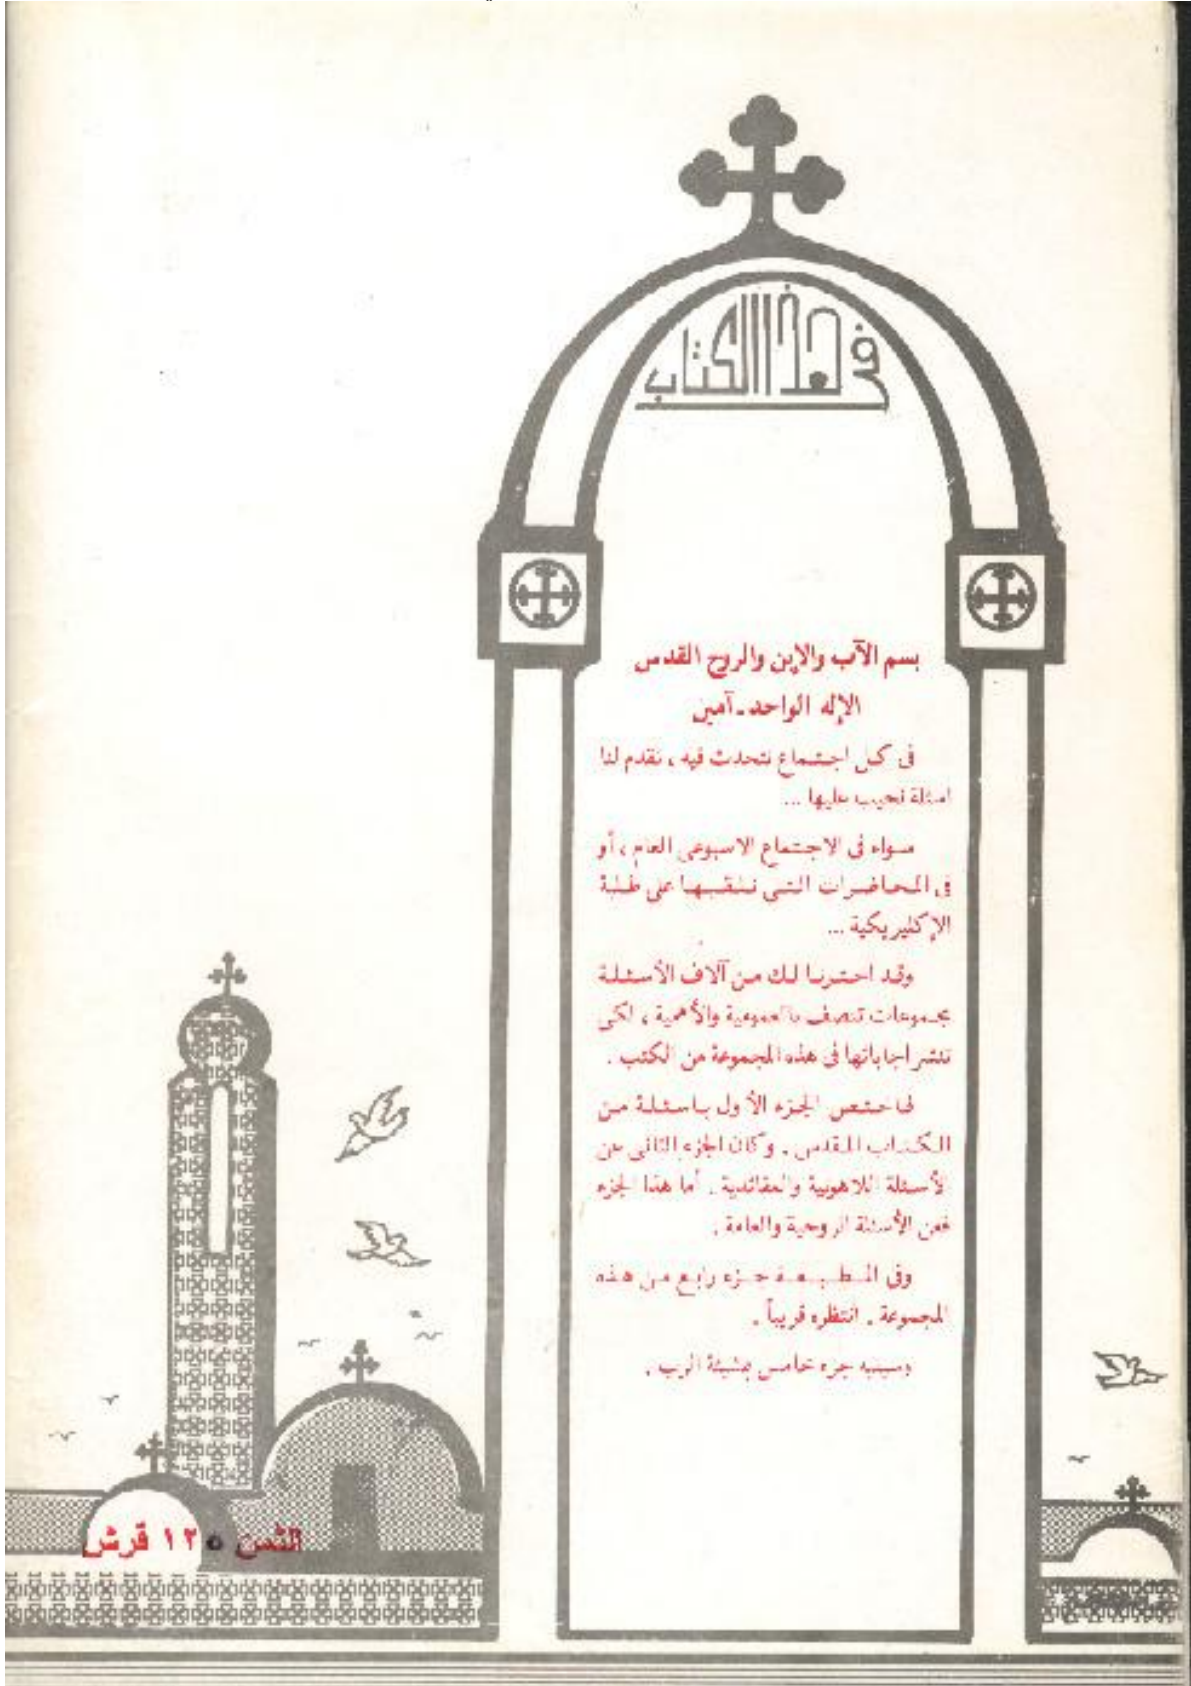 فى هذا الكتاب
بسم الآب والإبن والروح القدس
الإله الواحد ـ آمين
فى كل اجتماع نتحدث فيه ، تقدم لنا
اسئلة نجيب عليها ...
سواء فى الاجتماع الاسبوعى العام ، أو
فى المحاضرات التى نلقيها على طلبة
الإكليريكية ...
وقد اخترنا لك من آلاف الأسئلة
مجموعات تتصف بالعمومية والأهمية ، لكى
ننشر اجاباتها فى هذه المجموعة من الكتب .
فاختص الجزء الأول باسئلة من
الكتاب المقدس . وكان الجزء الثانى عن
الأسئلة اللاهوتية والعقائدية . أما هذا الجزء
فعن الأسئلة الروحية والعامة .
وفى المطبعة جزء رابع من هذه
المجموعة . انتظره قريباً .
وسيليه جزء خامس بمشيئة الرب .
الثمن ١٢٥ قرش